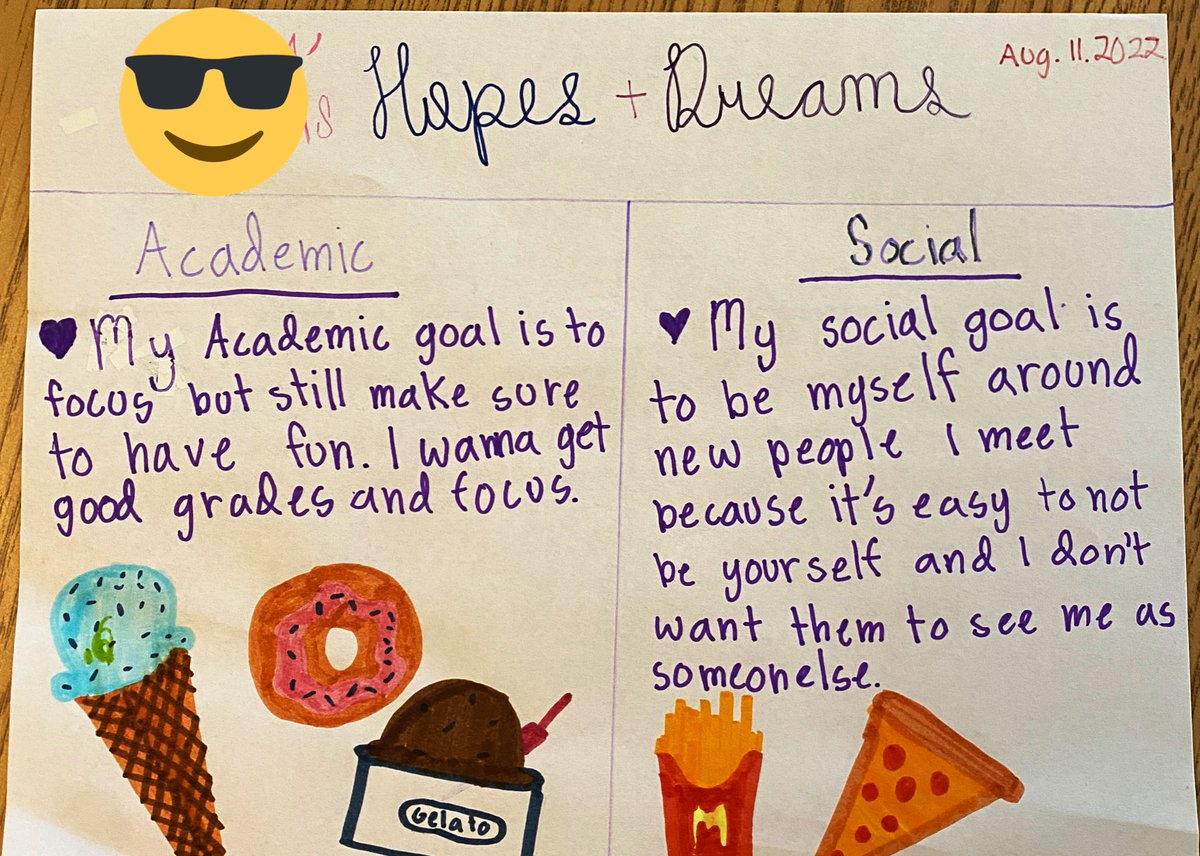 Hopes + Dreams
Aug. 11. 2022
Academic
My Academic goal is to
focus but still make sure
to have fun. I wanna get
good grades and focus.
Gelato
Social
My social goal is
to be myself around
new people I meet
because it's easy to not
be yourself and I don't
want them to see me as
someonelse.
M